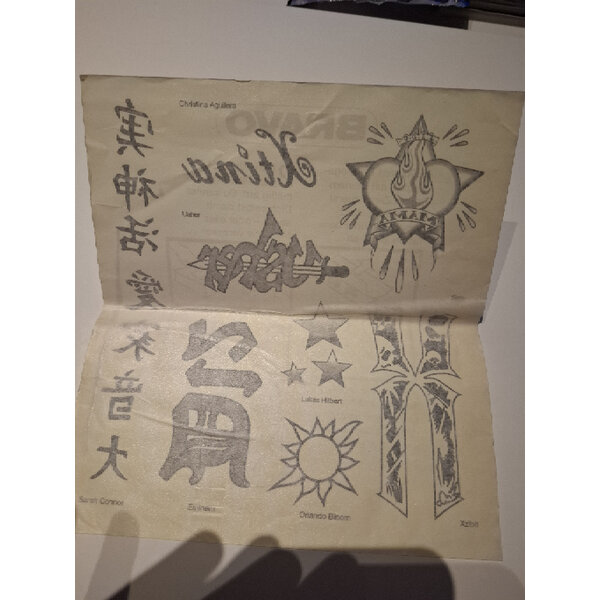 Christina Aguilera
BRAVO
Xtina
MAMA
Usher
実
神
活
愛
音
大
Lukas Hilbert
Sarah Connor
Eminem
Orlando Bloom
Xzibit